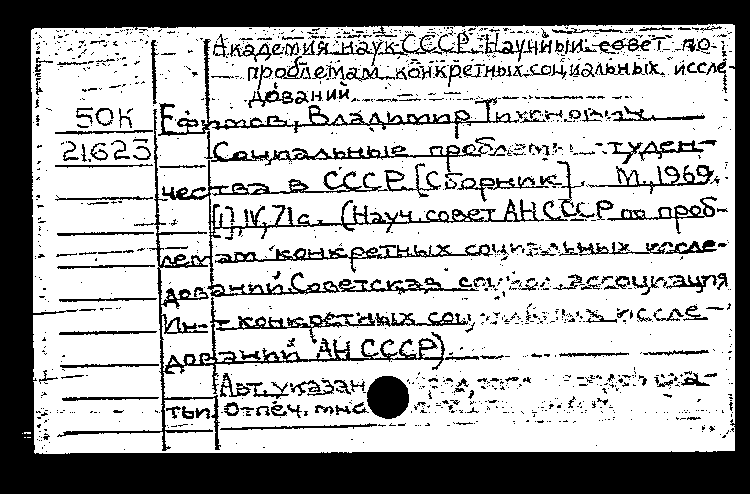 Академия наук СССР. Научный совет по
проблемам конкретных социальных иссле-
дований.
50К
Ефимов, Владимир Тихонович.
21623
Социальные проблемы студен-
чества в СССР. [Сборник]. М., 1969.
[1], IV, 71с. (Науч. совет АН СССР по проб-
лемам конкретных социальных иссле-
дований. Советская социол. ассоциация
Ин-т конкретных социальных иссле-
дований АН СССР).
Авт. указан
тьи. Отпеч. мно